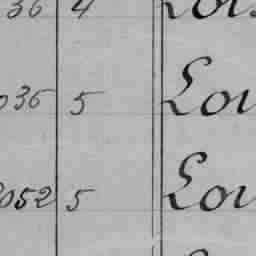 36 4 Lou
036 5 Lou
2052 5 Lou